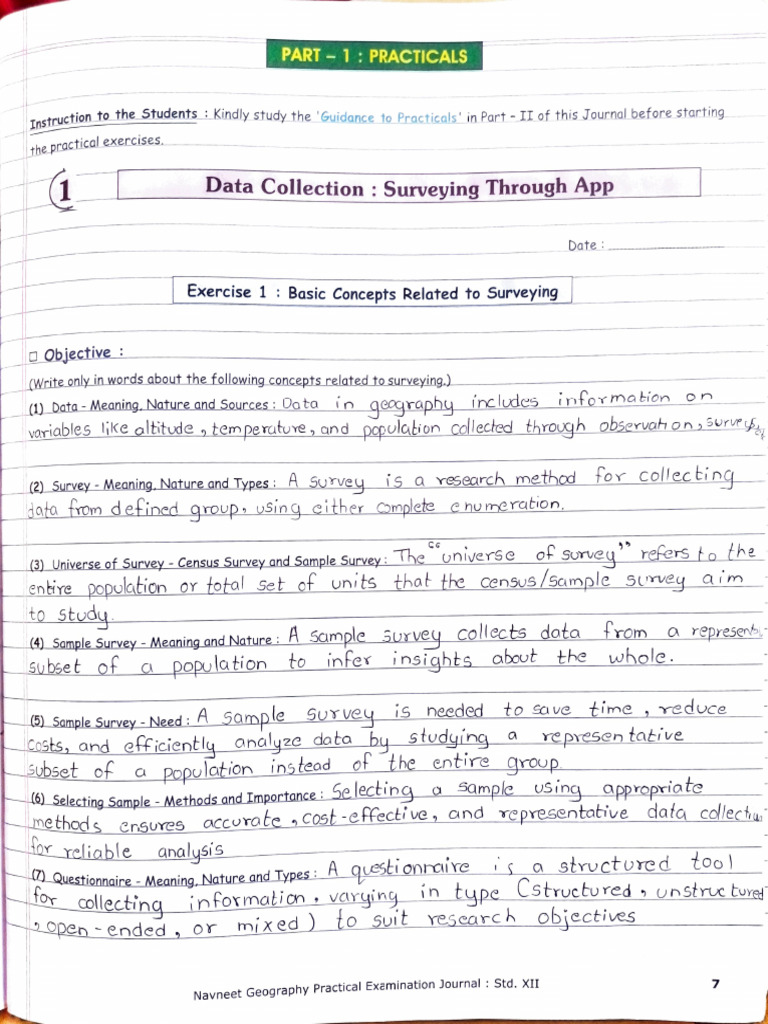 PART – 1 : PRACTICALS
Instruction to the Students : Kindly study the 'Guidance to Practicals' in Part - II of this Journal before starting
the practical exercises.
1
Data Collection : Surveying Through App
Date :
Exercise 1 : Basic Concepts Related to Surveying
Objective :
(Write only in words about the following concepts related to surveying.)
(1) Data - Meaning, Nature and Sources : Data in geography includes information on
variables like altitude, temperature, and population collected through observation, surveys,
(2) Survey - Meaning, Nature and Types : A survey is a research method for collecting
data from defined group, using either complete enumeration.
(3) Universe of Survey - Census Survey and Sample Survey : The "universe of survey" refers to the
entire population or total set of units that the census/sample survey aim
to study.
(4) Sample Survey - Meaning and Nature : A sample survey collects data from a
subset of a population to infer insights about the whole.
(5) Sample Survey - Need : A sample survey is needed to save time, reduce
costs, and efficiently analyze data by studying a representative
subset of a population instead of the entire group.
(6) Selecting Sample - Methods and Importance : Selecting a sample using appropriate
methods ensures accurate, cost-effective, and representative data
for reliable analysis
(7) Questionnaire - Meaning, Nature and Types : A questionnaire is a structured tool
for collecting information, varying in type (structured, unstructured
, open-ended, or mixed) to suit research objectives
Navneet Geography Practical Examination Journal : Std. XII
7